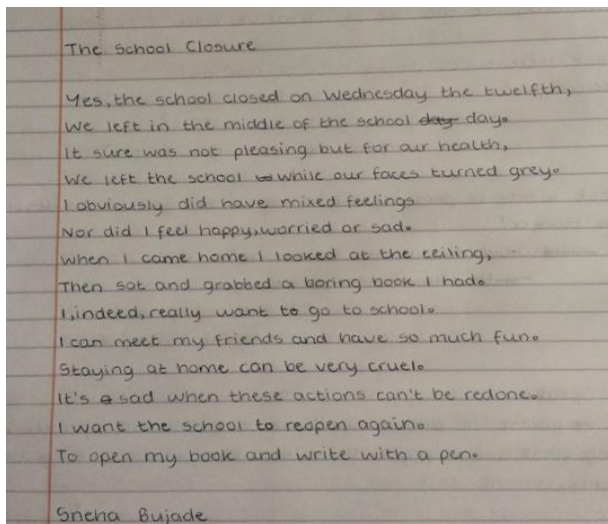 The School Closure
Yes, the school closed on Wednesday the twelfth,
We left in the middle of the school day day.
It sure was not pleasing but for our health,
We left the school while our faces turned grey.
I obviously did have mixed feelings
Nor did I feel happy, worried or sad.
When I came home I looked at the ceiling,
Then sat and grabbed a boring book I had.
I, indeed, really want to go to school.
I can meet my friends and have so much fun.
Staying at home can be very cruel.
It's a sad when these actions can't be redone.
I want the school to reopen again.
To open my book and write with a pen.
Sneha Bujade